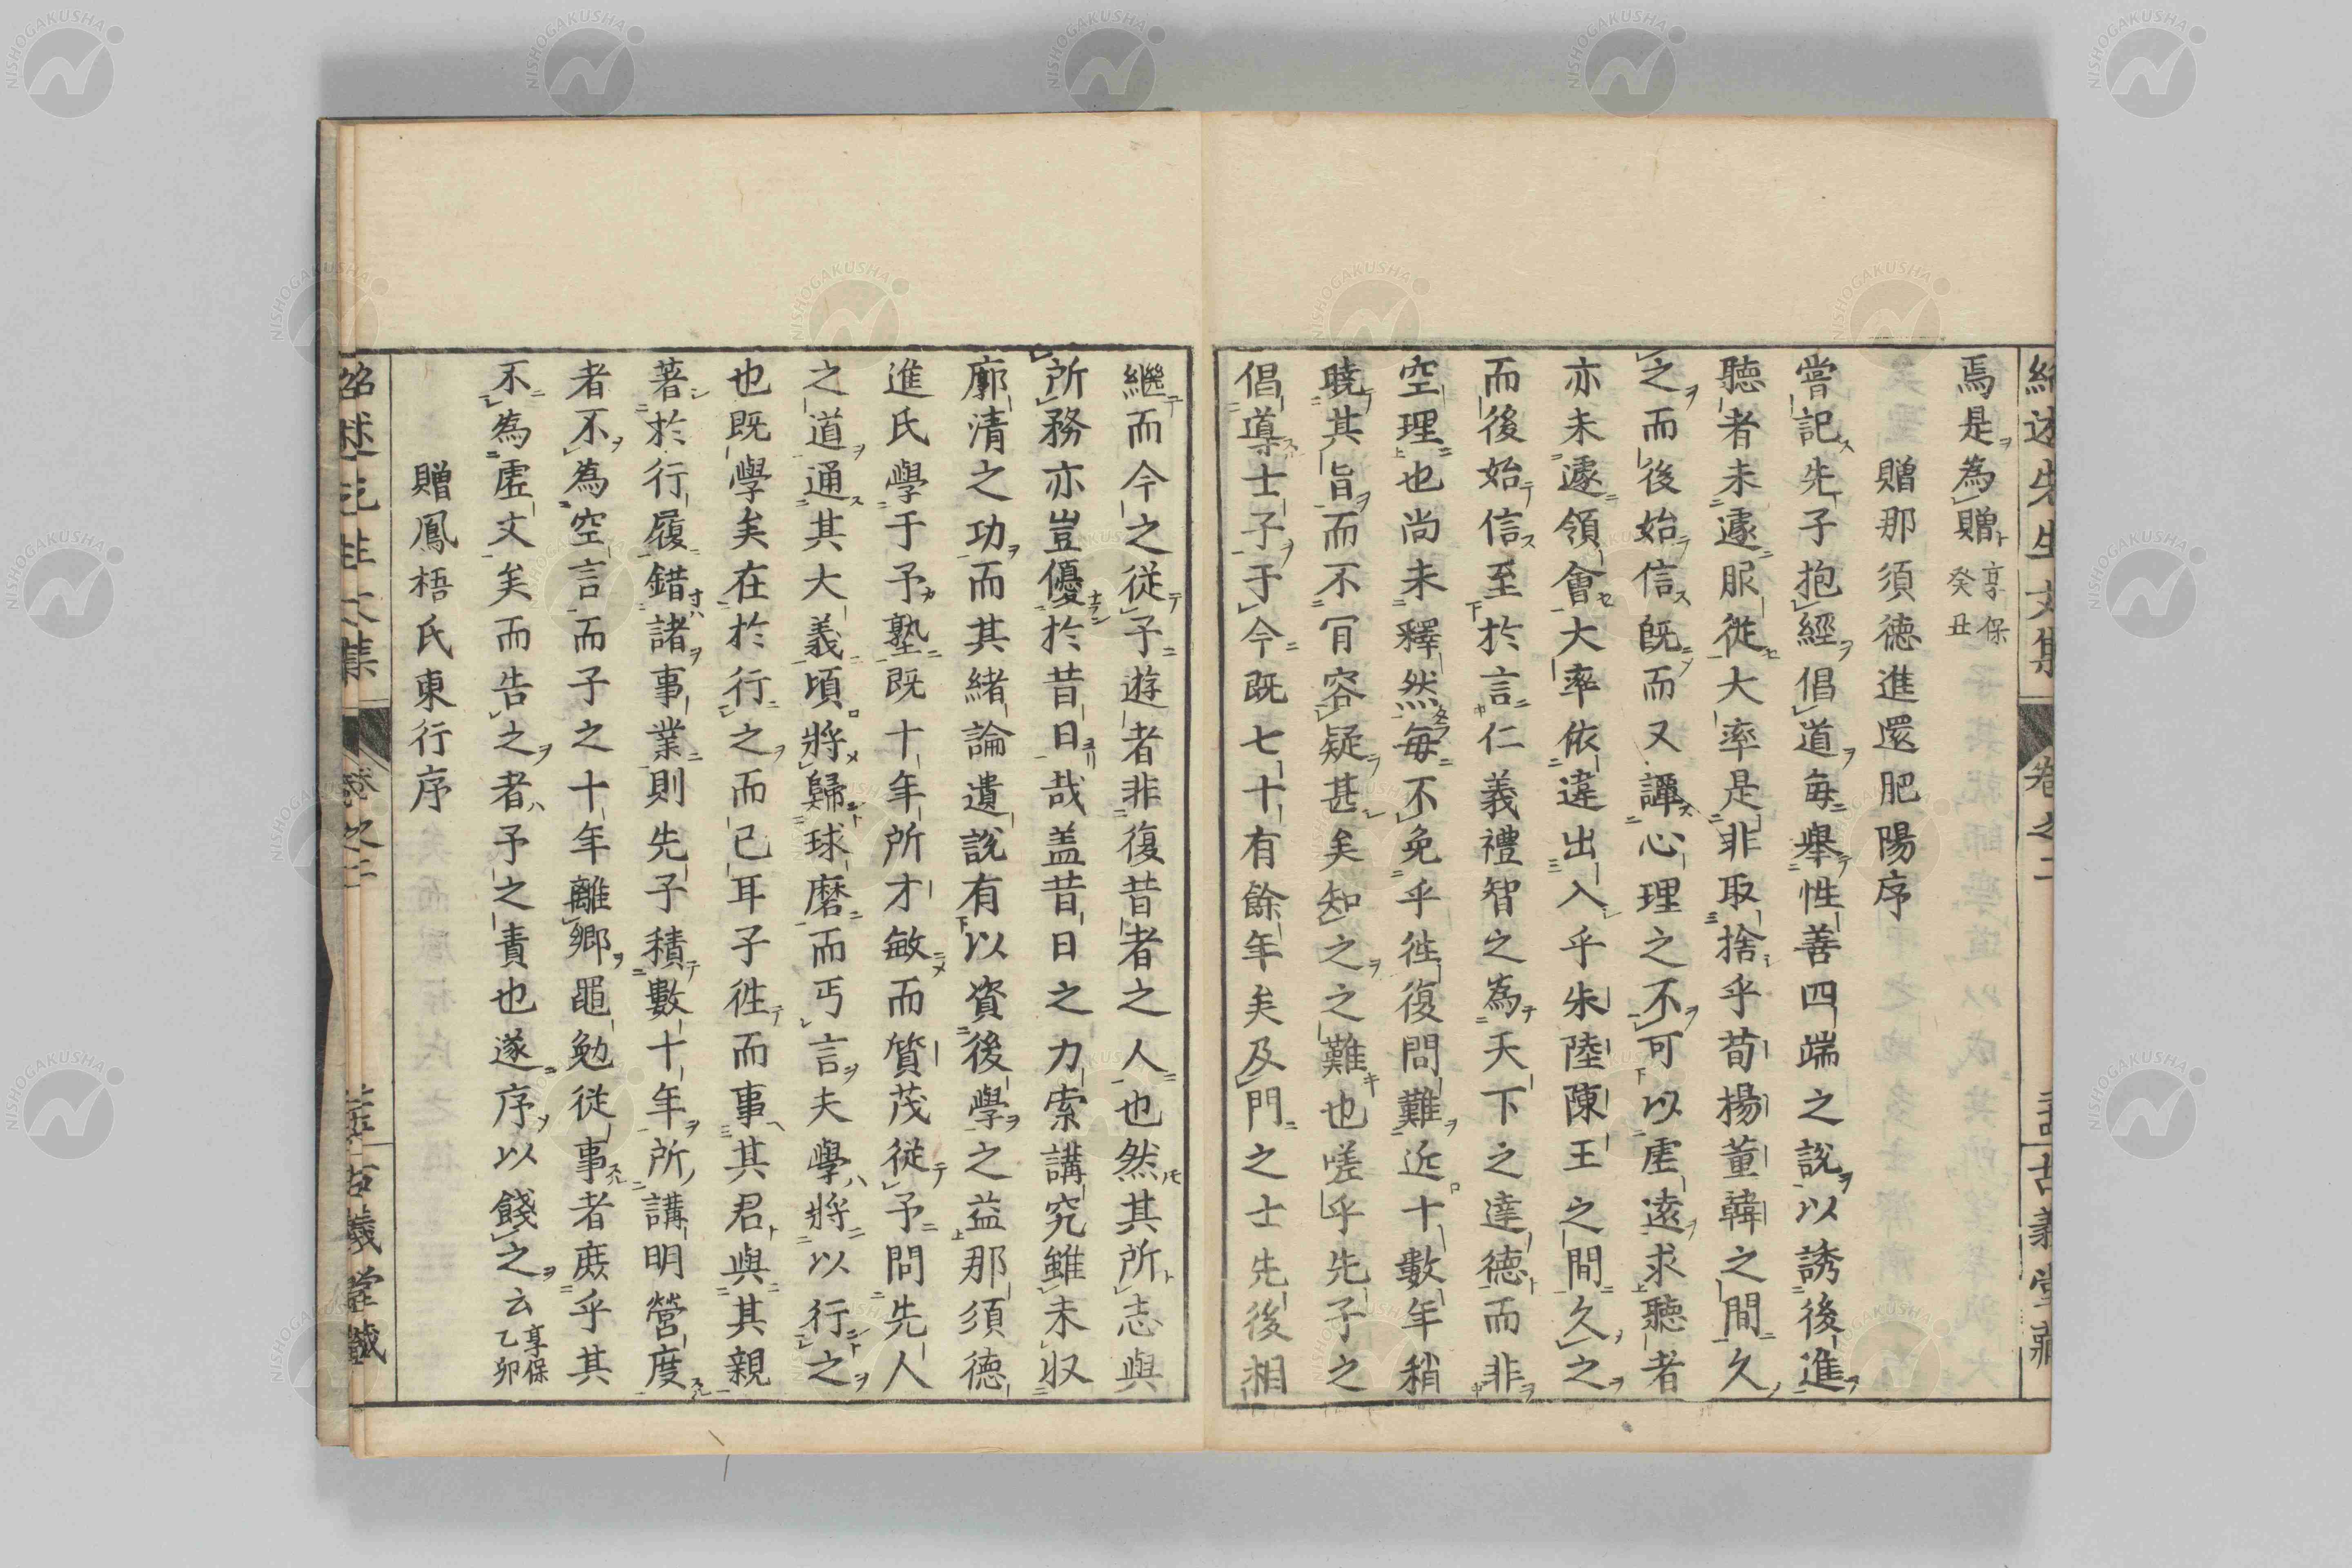 焉是為贈享保癸丑
贈那須徳進還肥陽序
嘗記先子抱經倡道毎舉性善四端之說以誘後進
聽者未遽服從大率是非取捨乎荀揚董韓之間久
之而後始信既而又譚心理之不可以虛遠求聽者
亦未遽領會大率依違出入乎朱陸陳王之間久之
而後始信至於言仁義禮智之為天下之達德而非
空理也尚未釋然毎不免乎徃復問難近十數年稍
曉其旨而不肎容疑甚矣知之之難也嗟乎先子之
倡導士子于今既七十有餘年矣及門之士先後相
繼而今之從予遊者非復昔者之人也然其所志與
所務亦豈優於昔日哉盖昔日之力索講究雖未収
廓清之功而其緒論遺說有以資後學之益那須徳
進氏學于予塾既十年所才敏而質茂從予問先人
之道通其大義頃將歸球磨而丐言夫學將以行之
也既學矣在於行之而已耳子徃而事其君與其親
著於行履錯諸事業則先子積數十年所講明營度
者不為空言而子之十年離鄉黽勉從事者庶乎其
不為虛文矣而告之者予之責也遂序以餞之云享保乙卯
贈鳳梧氏東行序
紹述先生文集 卷之二 古義堂藏
NISHOGAKUSHA